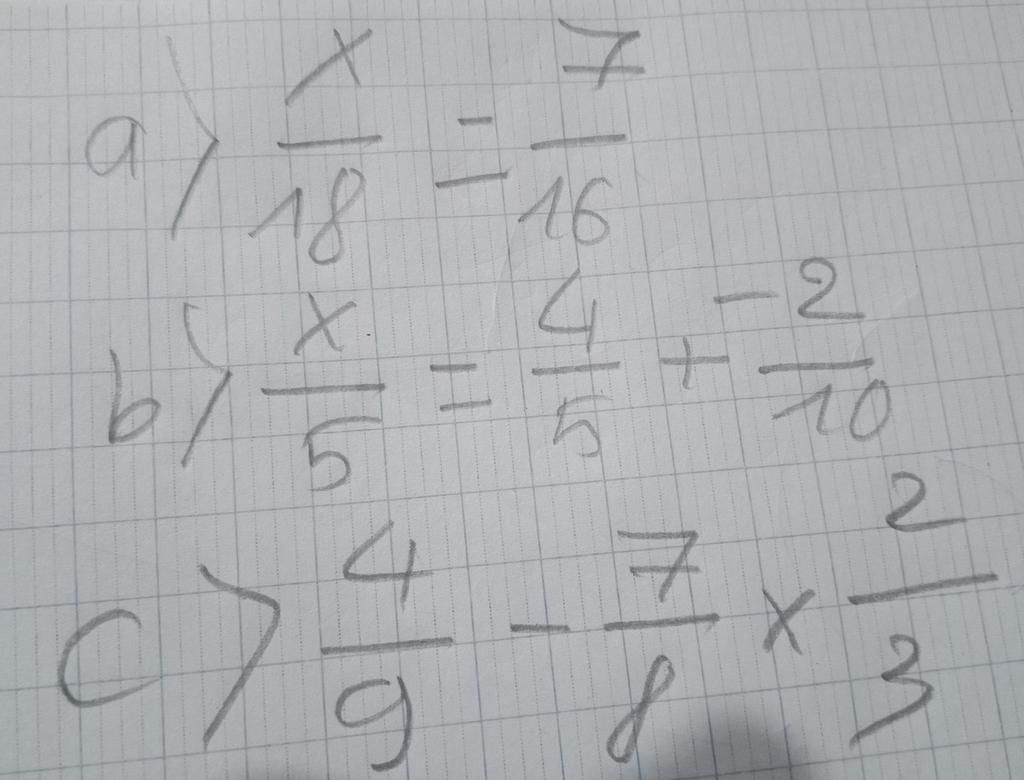 a) x/18 = 7/16
b) x/5 = 4/5 + -2/10
c) 4/9 - 7/8 x 2/3